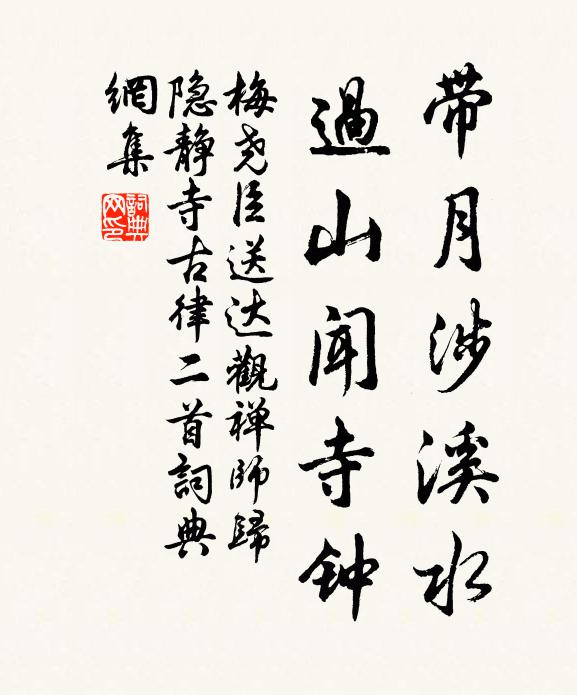 带月涉溪水
過山闻寺钟
梅尧臣送达觀禅师歸
隐静寺古律二首詞典
網集
詞典
网印